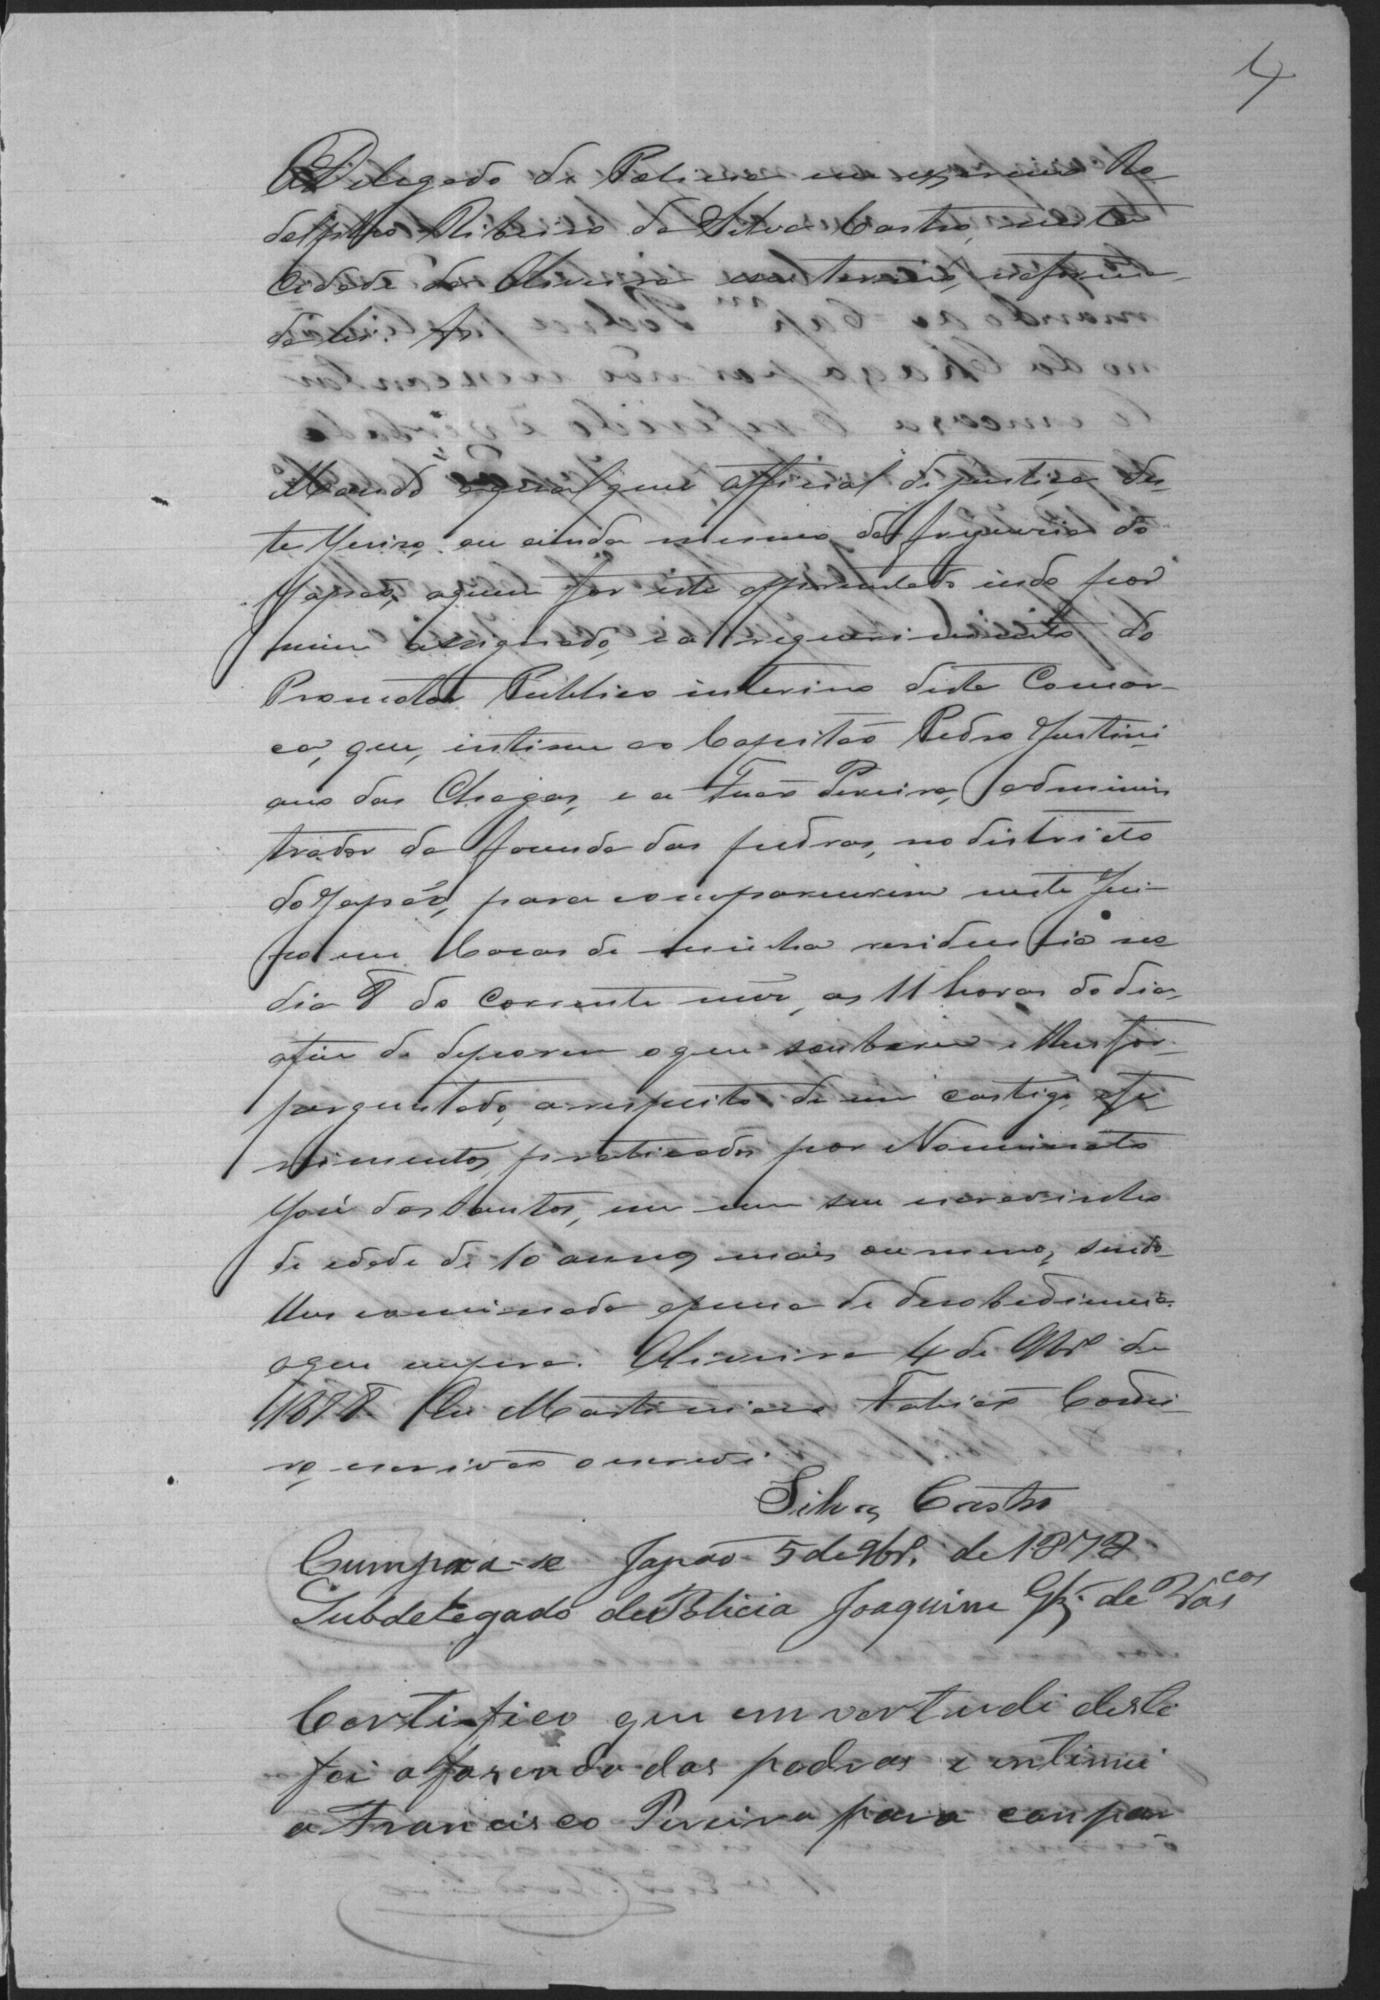 4
O Delegado de Policia em exercicio Ro
dolpho Ribeiro da Silva Castro, nesta
Cidade de Oliveira seu termo, na forma
da Lei. &
Mando a qual quer official de justiça des-
te Juizo, ou ainda mesmo da freguezia do
Japão, a quem for este apresentado indo por
mim assignado, e a requerimento do
Promotor Publico interino desta Comar-
ca, que, intime ao Capitão Pedro Justini
ano das Chagas, e a Fr.co Pereira, adminis
trador da fazenda das pedras, no districto
do Japão, para comparecerem neste Jui-
zo em Cazas de minha residencia no
dia 8 do corrente mez, as 11 horas do dia,
afim de deporem o que souberem e lhes for
perguntado, a respeito de um castigo, e fe
rimentos, praticados por Nominato
José dos Santos, em um seu escravinho
de edade de 10 annos mais ou menos, sendo-
lhes comminada a pena de desobediencia.
o que cumpra. Oliveira 4 de 9br.o de
1878 Eu Martiniano Fabião Cordei
ro, escrivão o escrevi
Silva Castro
Cumpra-se Japão 5 de 9br. de 1878
Subdelegado de Policia Joaquim de Vas.cos
Certifico que em vertude deste
fui a fazenda das pedras e intimei
a Francisco Pereira para compar